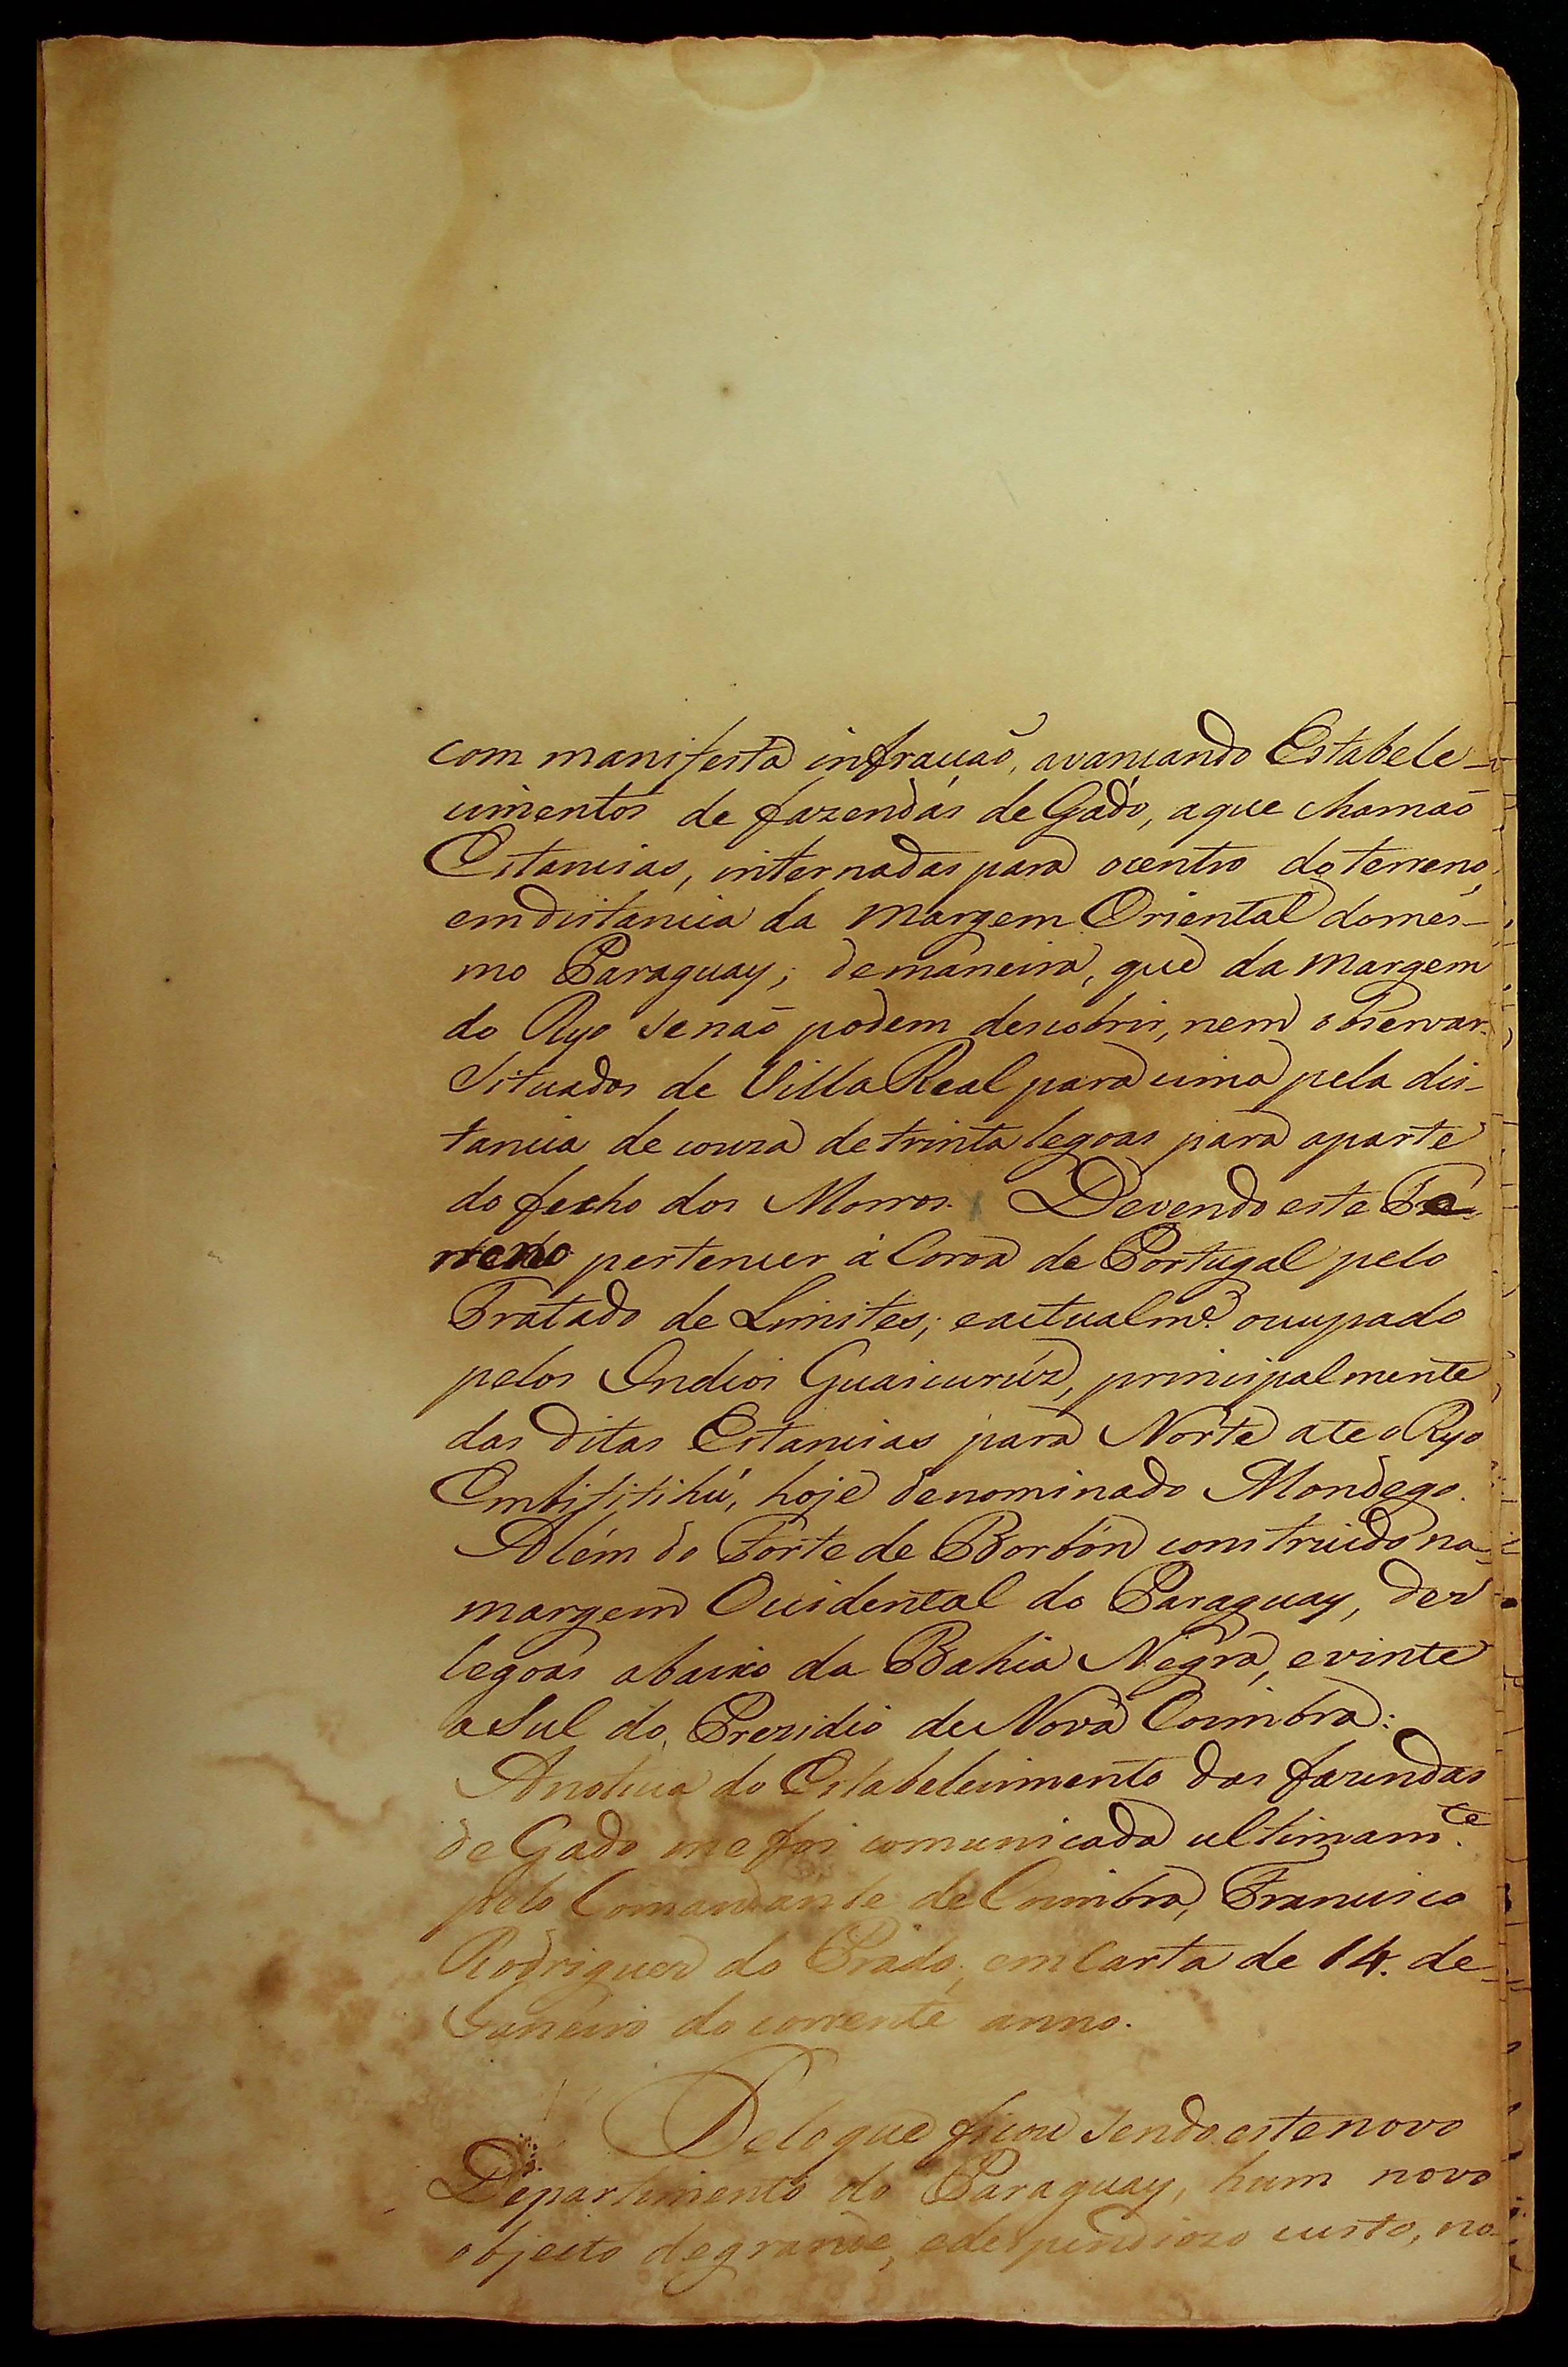 com manifesta infracçaõ, avançando Estabele-
cimentos de fazendas de Gado, aque chamaõ
Estancias, internadas para ocentro do terreno,
emdistancia da margem Oriental domes-
mo Paraguay; demaneira, que da margem
do Ryo senaõ podem descobrir, nem observar.
Situados de Villa Real para cima pela dis-
tancia de couza de trinta legoas para aparte
do fecho dos Morros. Devendo este Te-
rreno pertencer á Coroa de Portugal pelo
Tratado de Limites; eactualmᵉ. occupado
pelos Indios Guaicurúz, principalmente
das ditas Estancias para Norte ate o Ryo
Embititihú, hoje denominado Mondego.
Além do Forte de Borbón construido na
margem Occidental do Paraguay, dez
legoas abaixo da Bahia Negra, evinte
a Sul do Prezidio de Nova Coimbra:
Anoticia do Estabelecimento das fazendas
de Gado me foi comunicada ultimamᵗᵉ.
pelo Comandante de Coimbra, Francisco
Rodriguez do Prado, em Carta de 14. de
Janeiro do corrente anno.
Pelo que ficou sendo este novo
Departimento do Paraguay, hum novo
objecto degrande, edespendiozo custo, no